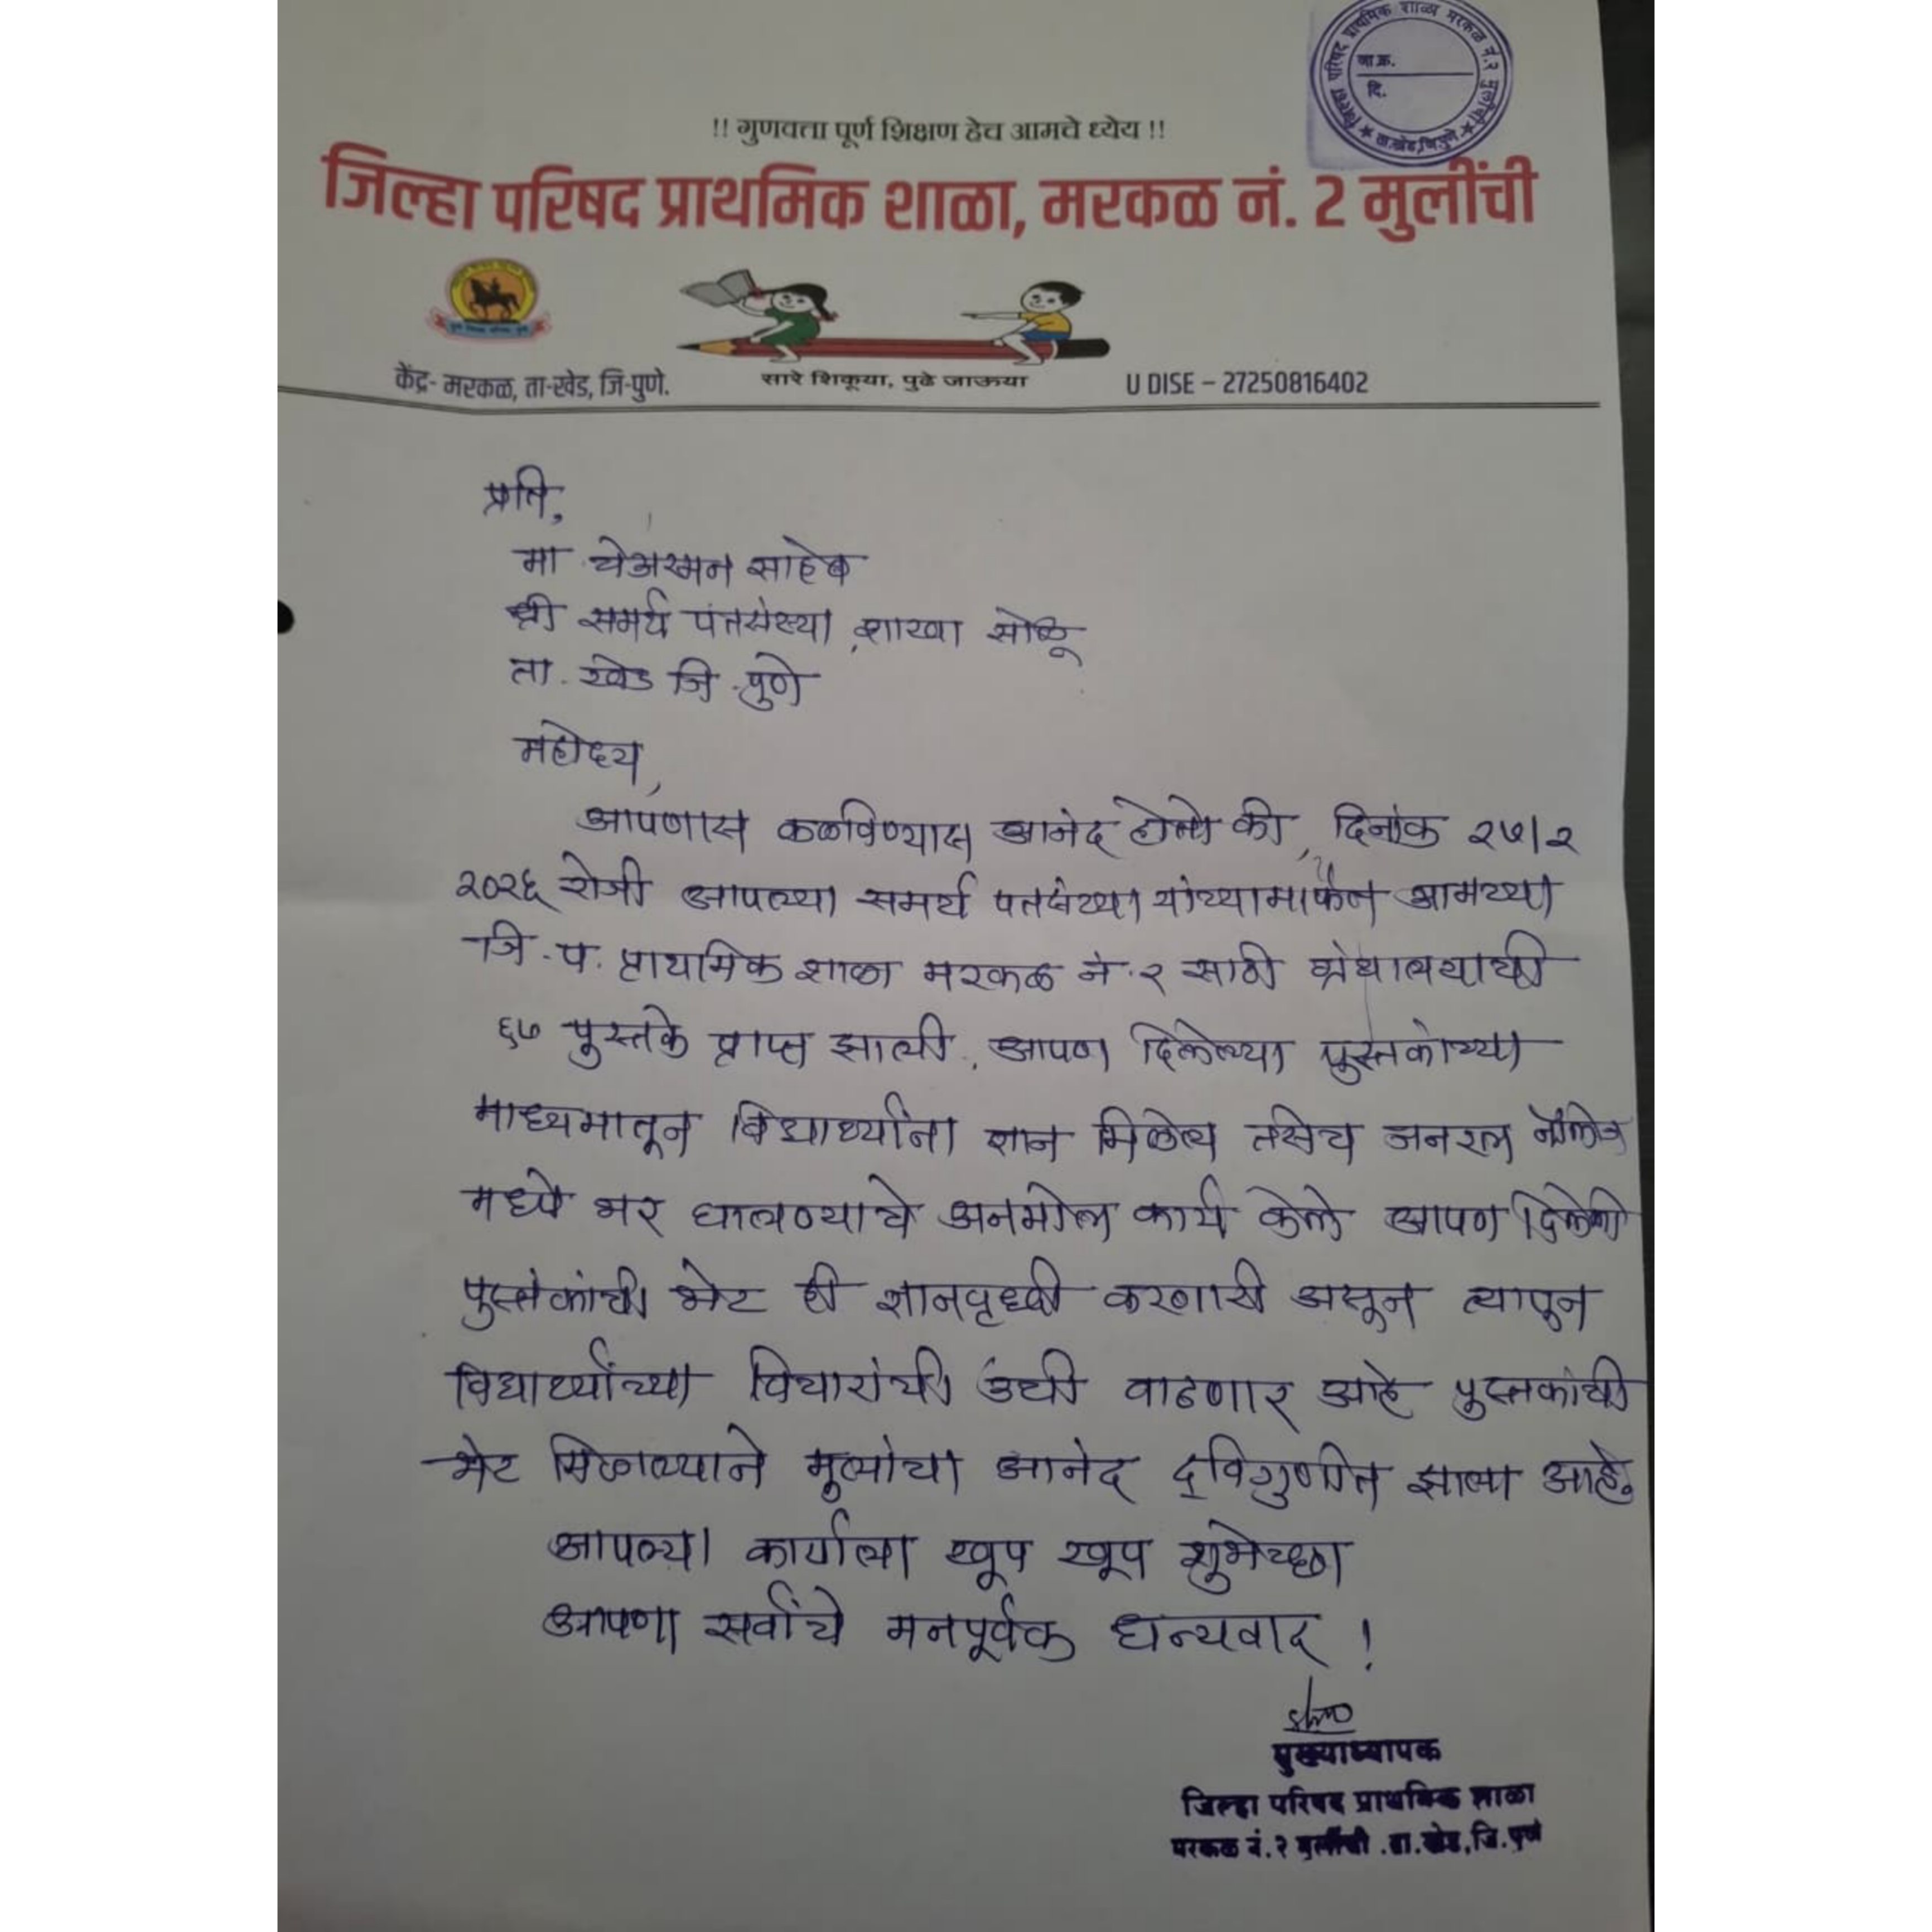 जिल्हा परिषद प्राथमिक शाळा मरकळ नं.२ मुलींची
जा.क्र.
दि.
ता.खेड,जि.पुणे
!! गुणवत्ता पूर्ण शिक्षण हेच आमचे ध्येय !!
जिल्हा परिषद प्राथमिक शाळा, मरकळ नं. 2 मुलींची
केंद्र- मरकळ, ता-खेड, जि-पुणे.
सारे शिकूया, पुढे जाऊया
U DISE – 27250816402
प्रति,
मा. चेअरमन साहेब
श्री समर्थ पतसंस्था, शाखा सोळू
ता. खेड जि. पुणे
महोदय,
आपणास कळविण्यास आनंद होतो की, दिनांक २७/२
२०२६ रोजी आपल्या समर्थ पतसंस्था यांच्यामार्फत आमच्या
जि. प. प्राथमिक शाळा मरकळ नं. २ साठी ग्रंथालयाची
६७ पुस्तके प्राप्त झाली. आपण दिलेल्या पुस्तकांच्या
माध्यमातून विद्यार्थ्यांना ज्ञान मिळेल तसेच जनरल नॉलेज
मध्ये भर घालण्याचे अनमोल कार्य केले आपण दिलेली
पुस्तकांची भेट ही ज्ञानवृध्दी करणारी असून त्यापून
विद्यार्थ्यांच्या विचारांची उंची वाढणार आहे पुस्तकांची
भेट मिळाल्याने मुलांचा आनंद द्विगुणीत झाला आहे.
आपल्या कार्याला खूप खूप शुभेच्छा
आपणा सर्वांचे मनपूर्वक धन्यवाद !
मुख्याध्यापक
जिल्हा परिषद प्राथमिक शाळा
मरकळ नं.२ मुलींची .ता.खेड,जि.पुणे